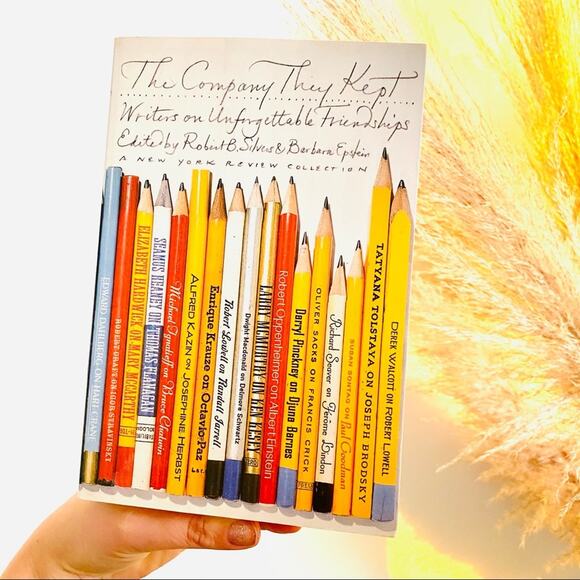 The Company They Kept
Writers on Unforgettable Friendships
Edited by Robert B. Silvers & Barbara Epstein
A NEW YORK REVIEW COLLECTION
EDWARD DAHLBERG ON HART CRANE
ROBERT CRAFT ON IGOR STRAVINSKY
ELIZABETH HARDWICK ON MARY MCCARTHY
SEAMUS HEANEY ON THOMAS FLANAGAN
Michael Ignatieff on Bruce Chatwin
ALFRED KAZIN ON JOSEPHINE HERBST
Enrique Krauze on Octavio Paz
Robert Lowell on Randall Jarrell
Dwight Macdonald on Delmore Schwartz
LARRY MCMURTRY ON KEN KESEY
Robert Oppenheimer on Albert Einstein
Darryl Pinckney on Djuna Barnes
OLIVER SACKS ON FRANCIS CRICK
Richard Seaver on Jérôme Lindon
SUSAN SONTAG ON Paul Goodman
TATYANA TOLSTAYA ON JOSEPH BRODSKY
DEREK WALCOTT ON ROBERT LOWELL